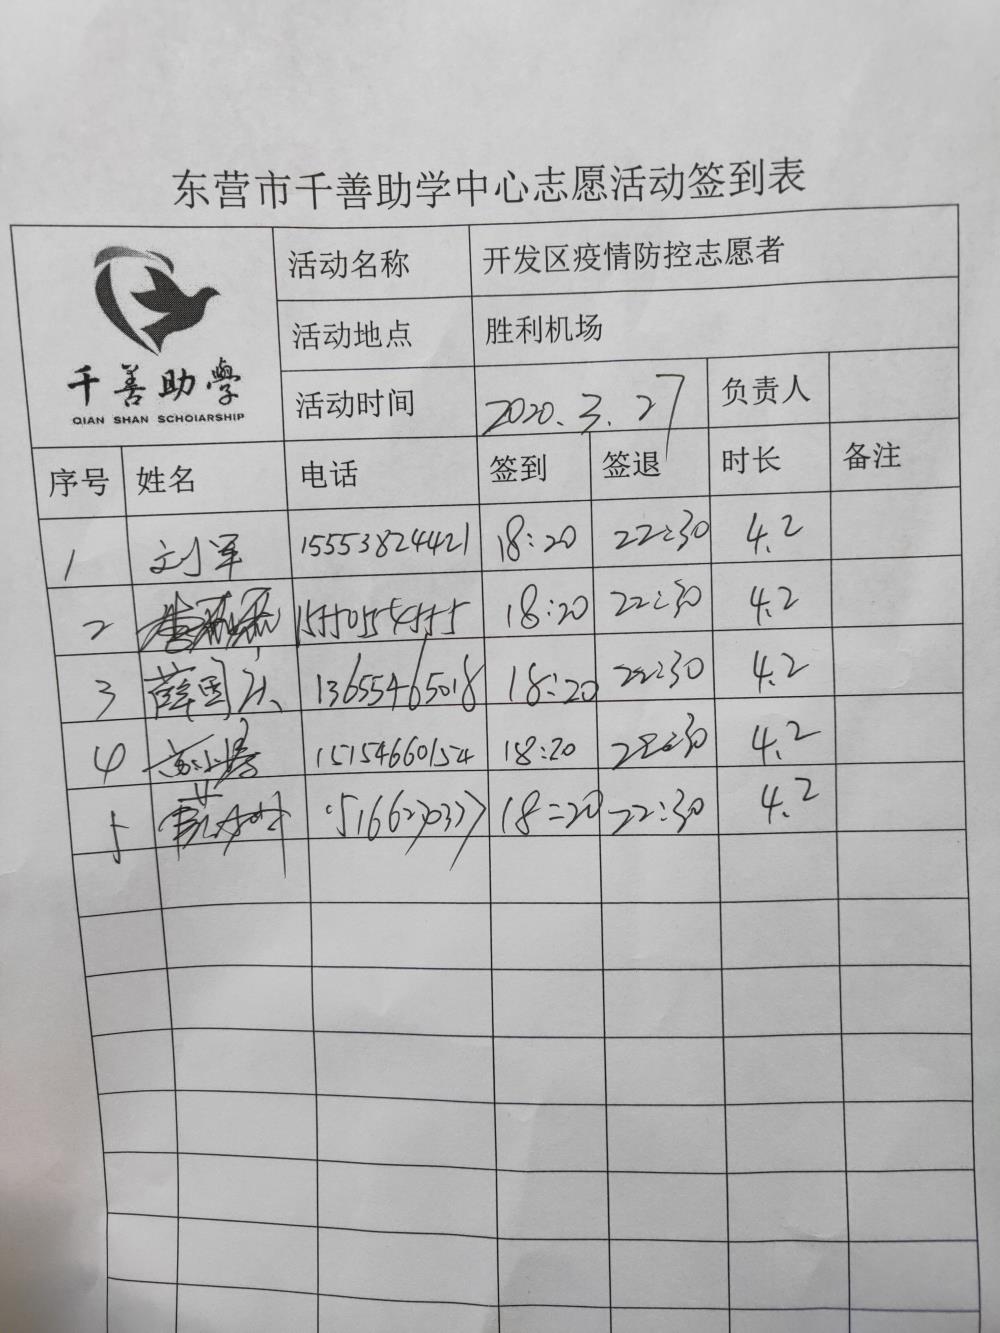 东营市千善助学中心志愿活动签到表
千善助學
QIAN SHAN SCHOIARSHIP
活动名称 开发区疫情防控志愿者
活动地点 胜利机场
活动时间 2020.3.27 负责人
序号 姓名 电话 签到 签退 时长 备注
1 刘军 15553824421 18:20 22:30 4.2
2 18:20 22:30 4.2
3 薛国 13655465018 18:20 22:30 4.2
4 15154660154 18:20 22:30 4.2
5 18:20 22:30 4.2